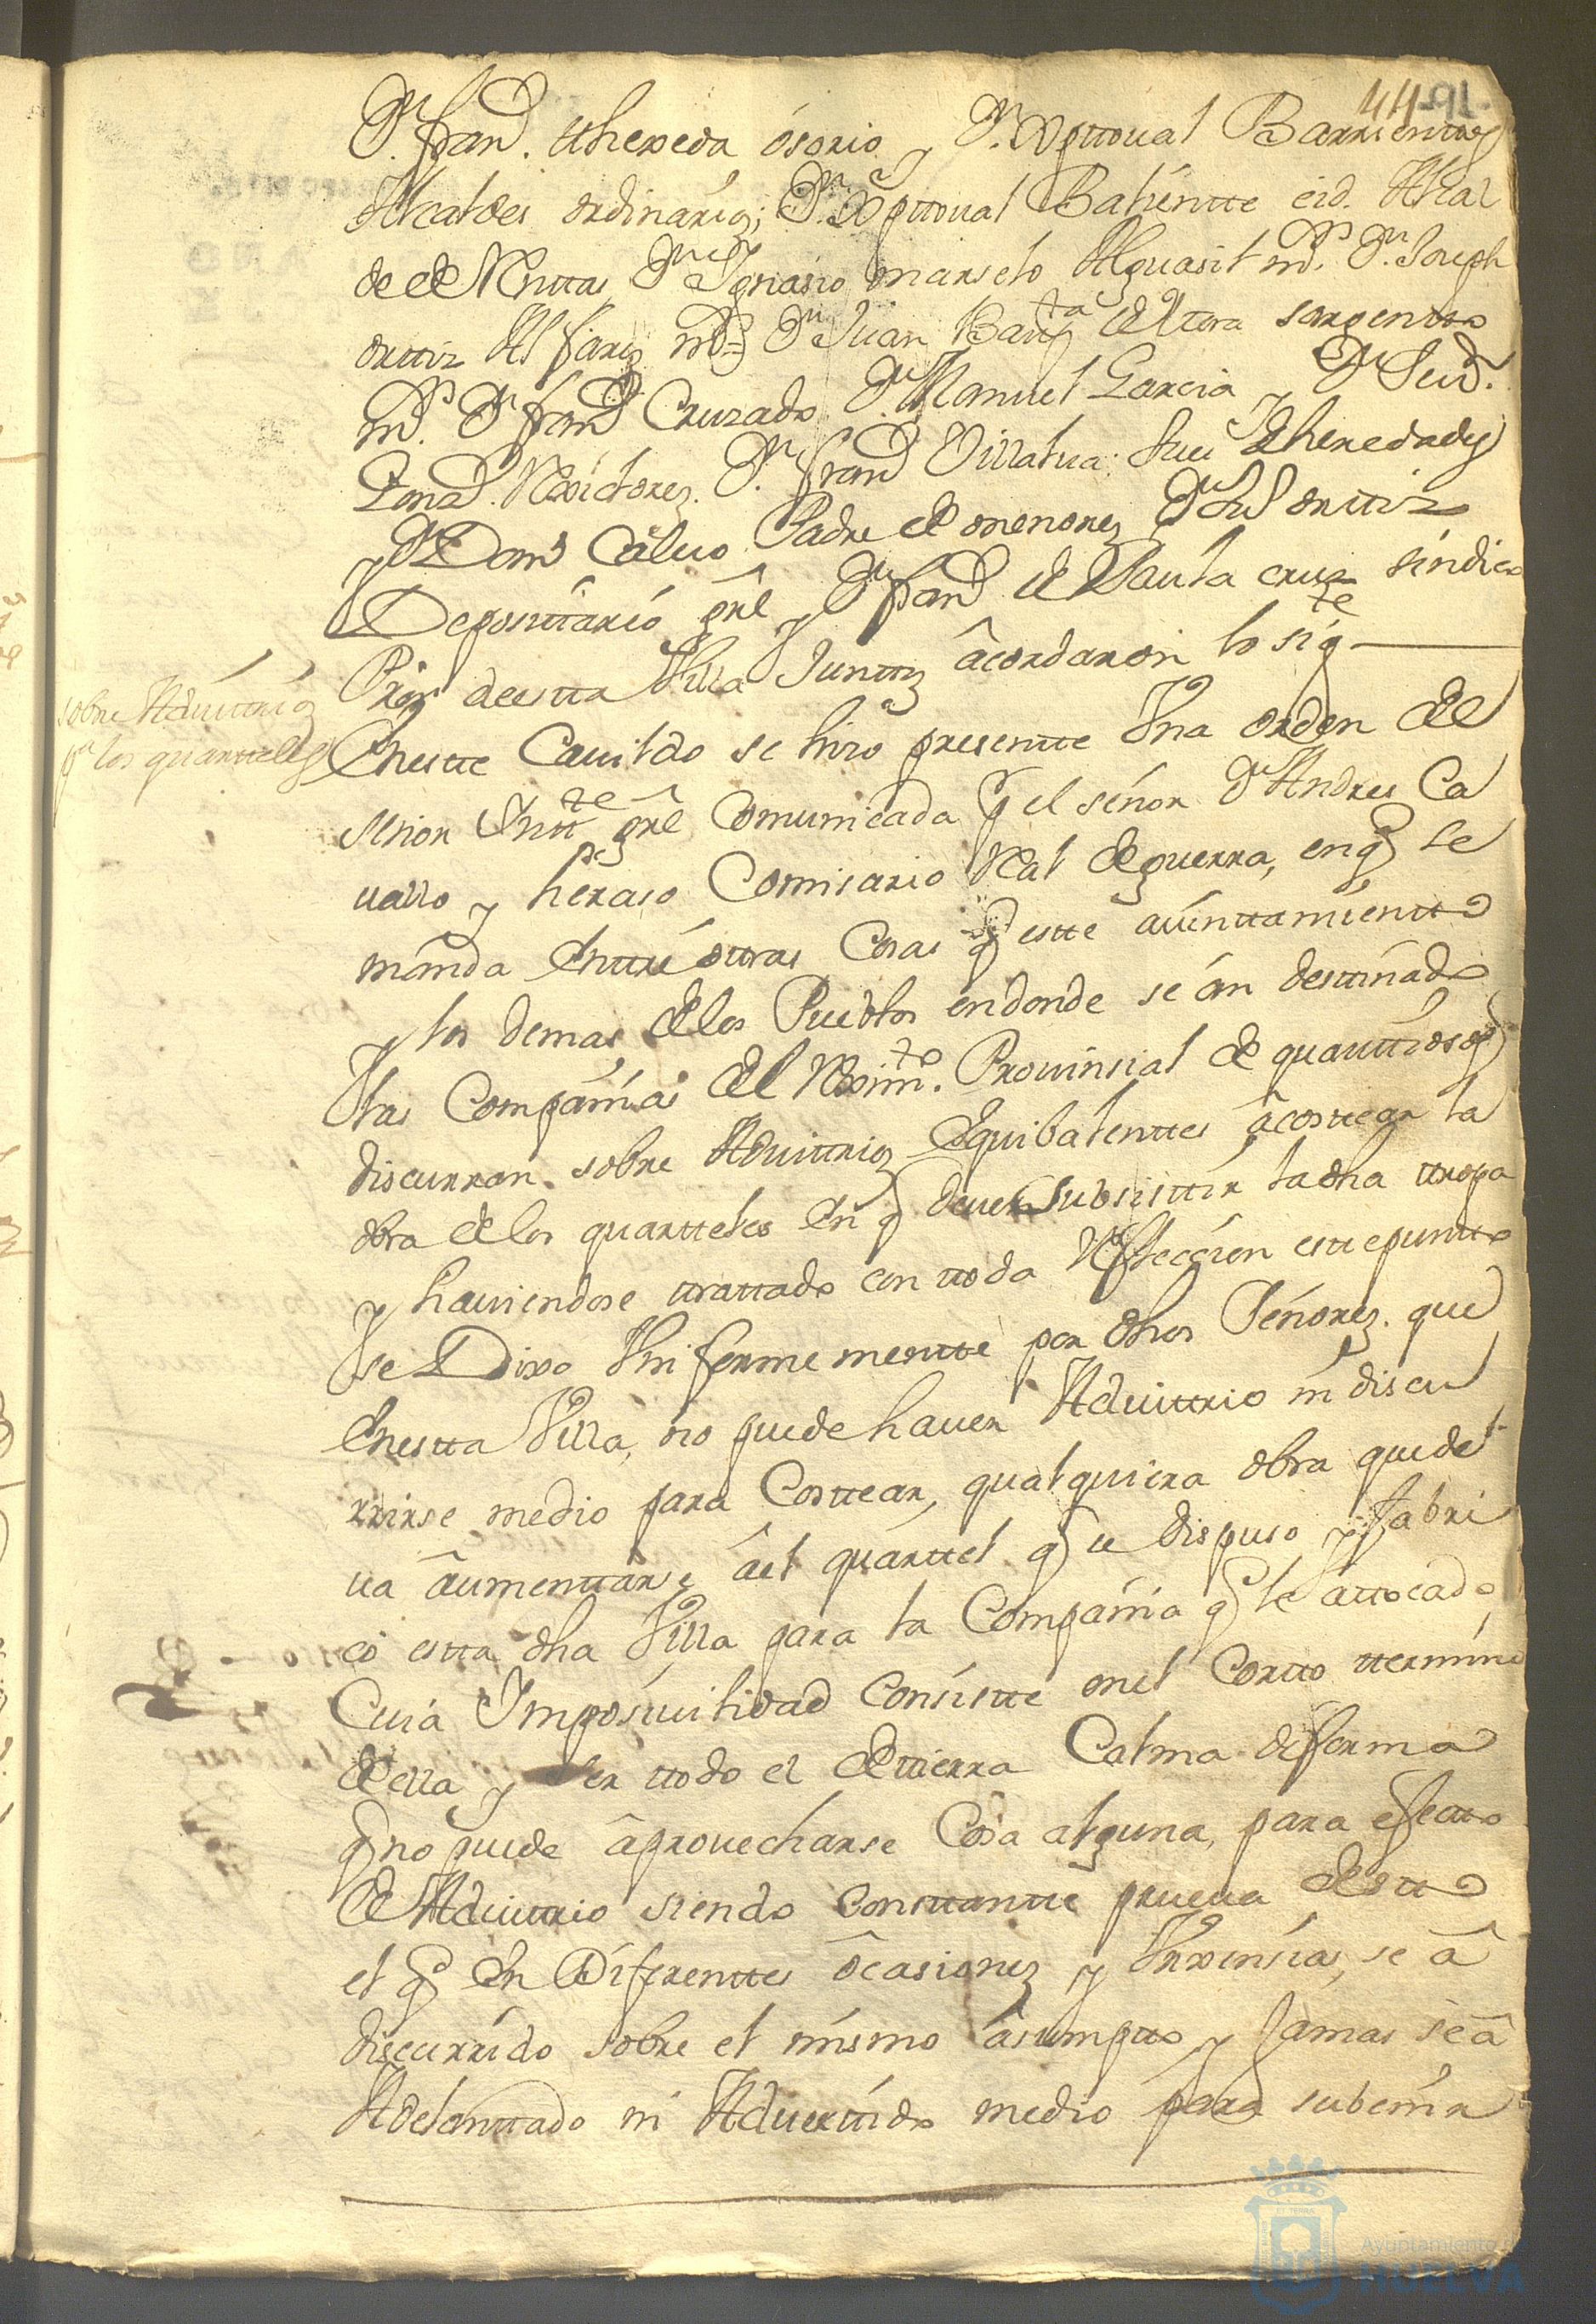 44 91
Dn. Franco. thexeda osorio y Dn. Xptoual Barrientos
Alcaldes ordinarios; Dn. Xptoual Balientte eid. Alcal
de de Renttas Dn. Ygnasio marselo Alguasil mr. Dn. Joseph
orttiz Alfariz mr. Dn. Juan Bautta de sargentto
mr. Dn. Franco Cruzado Dn. Manuel Garcia y Dn.
Gonz. Rexidores. Dn. Franco Villalua Jues de heredades
y Dn. Domo Caluo Padre de menores Dn. orttiz
Deposittario grl y Dn. Franco de Santa cruz sindico
Pror deestta Villa Junttos acordaron lo sigte
sobre Aduittrios
pa los quartteles
Enestte Cauildo se hizo presentte Vna orden del
señor Yntte grl Comunicada pr el señor Dn Andres Ca
uallo y heraso Comisario Real de guerra, en q se
manda Enttre ottras Cosas q estte aiunttamientto
y los demas de los Pueblos en donde se an desttinado
las Compañias del Reximto. Prouinsial de quanttiosos
discurran sobre Aduittrios Equibalenttes acosttear la
obra de los quartteles En q deuen Subsisttir la dha ttropa
y hauiendose ttrattado con ttoda Reflección estte puntto
se Dixo Vniformementte por dhos Señores que
Enestta Villa, no puede hauer Aduittrio ni discu
rrirse medio para Costtear, qualquiera obra quede
ua aumenttarse ael quarttel q se dispuso y fabri
có estta dha Villa para la Compañia q le a ttocado
Cuia Ymposiuilidad Consistte en el Cortto ttermino
de ella y ser ttodo el de ttierra Calma de forma
q no puede aprouecharse Cosa alguna, para efectto
de Aduittrio siendo Consttantte prueua de estto
el q En Diferenttes ocasiones y Vrxensias, se á
discurrido sobre el mismo asumptto y Jamas se á
Adelanttado ni Aduerttido medio para subenir
Ayuntamiento
HUELVA